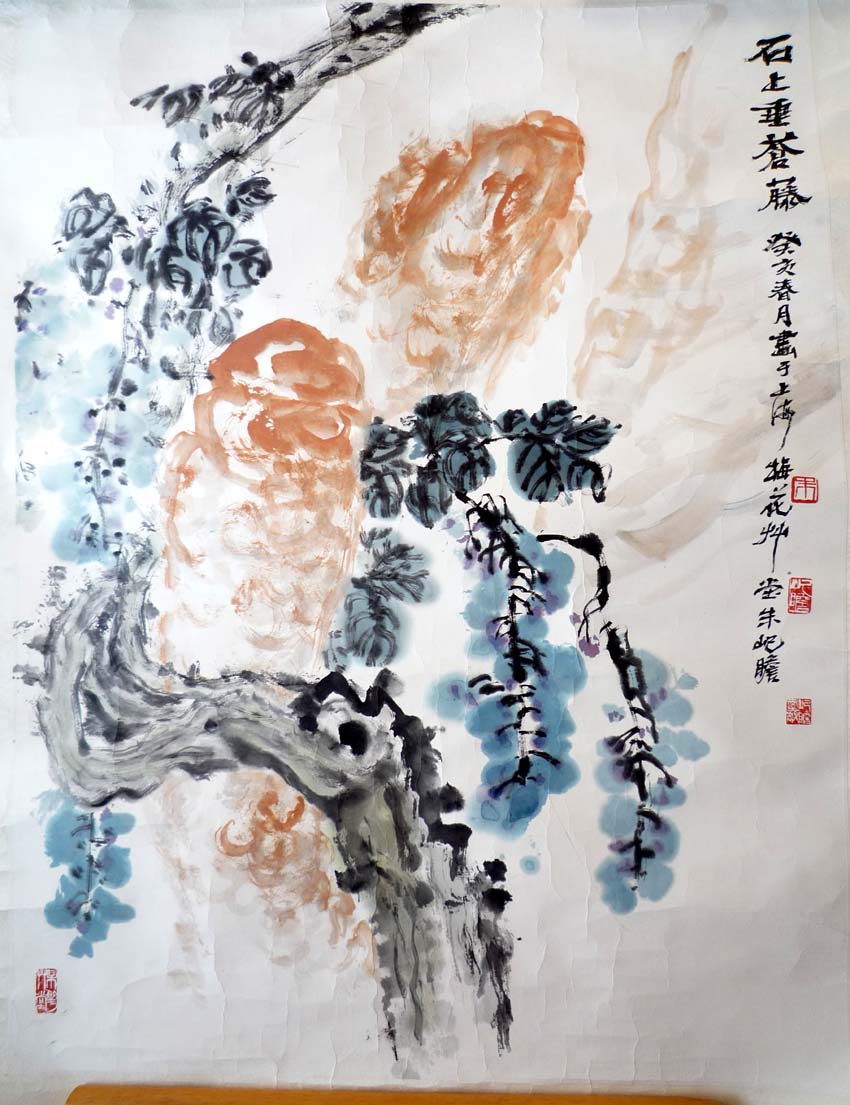 石上垂蒼藤 癸亥春月畫于上海梅花艸堂朱屺瞻
朱
屺瞻